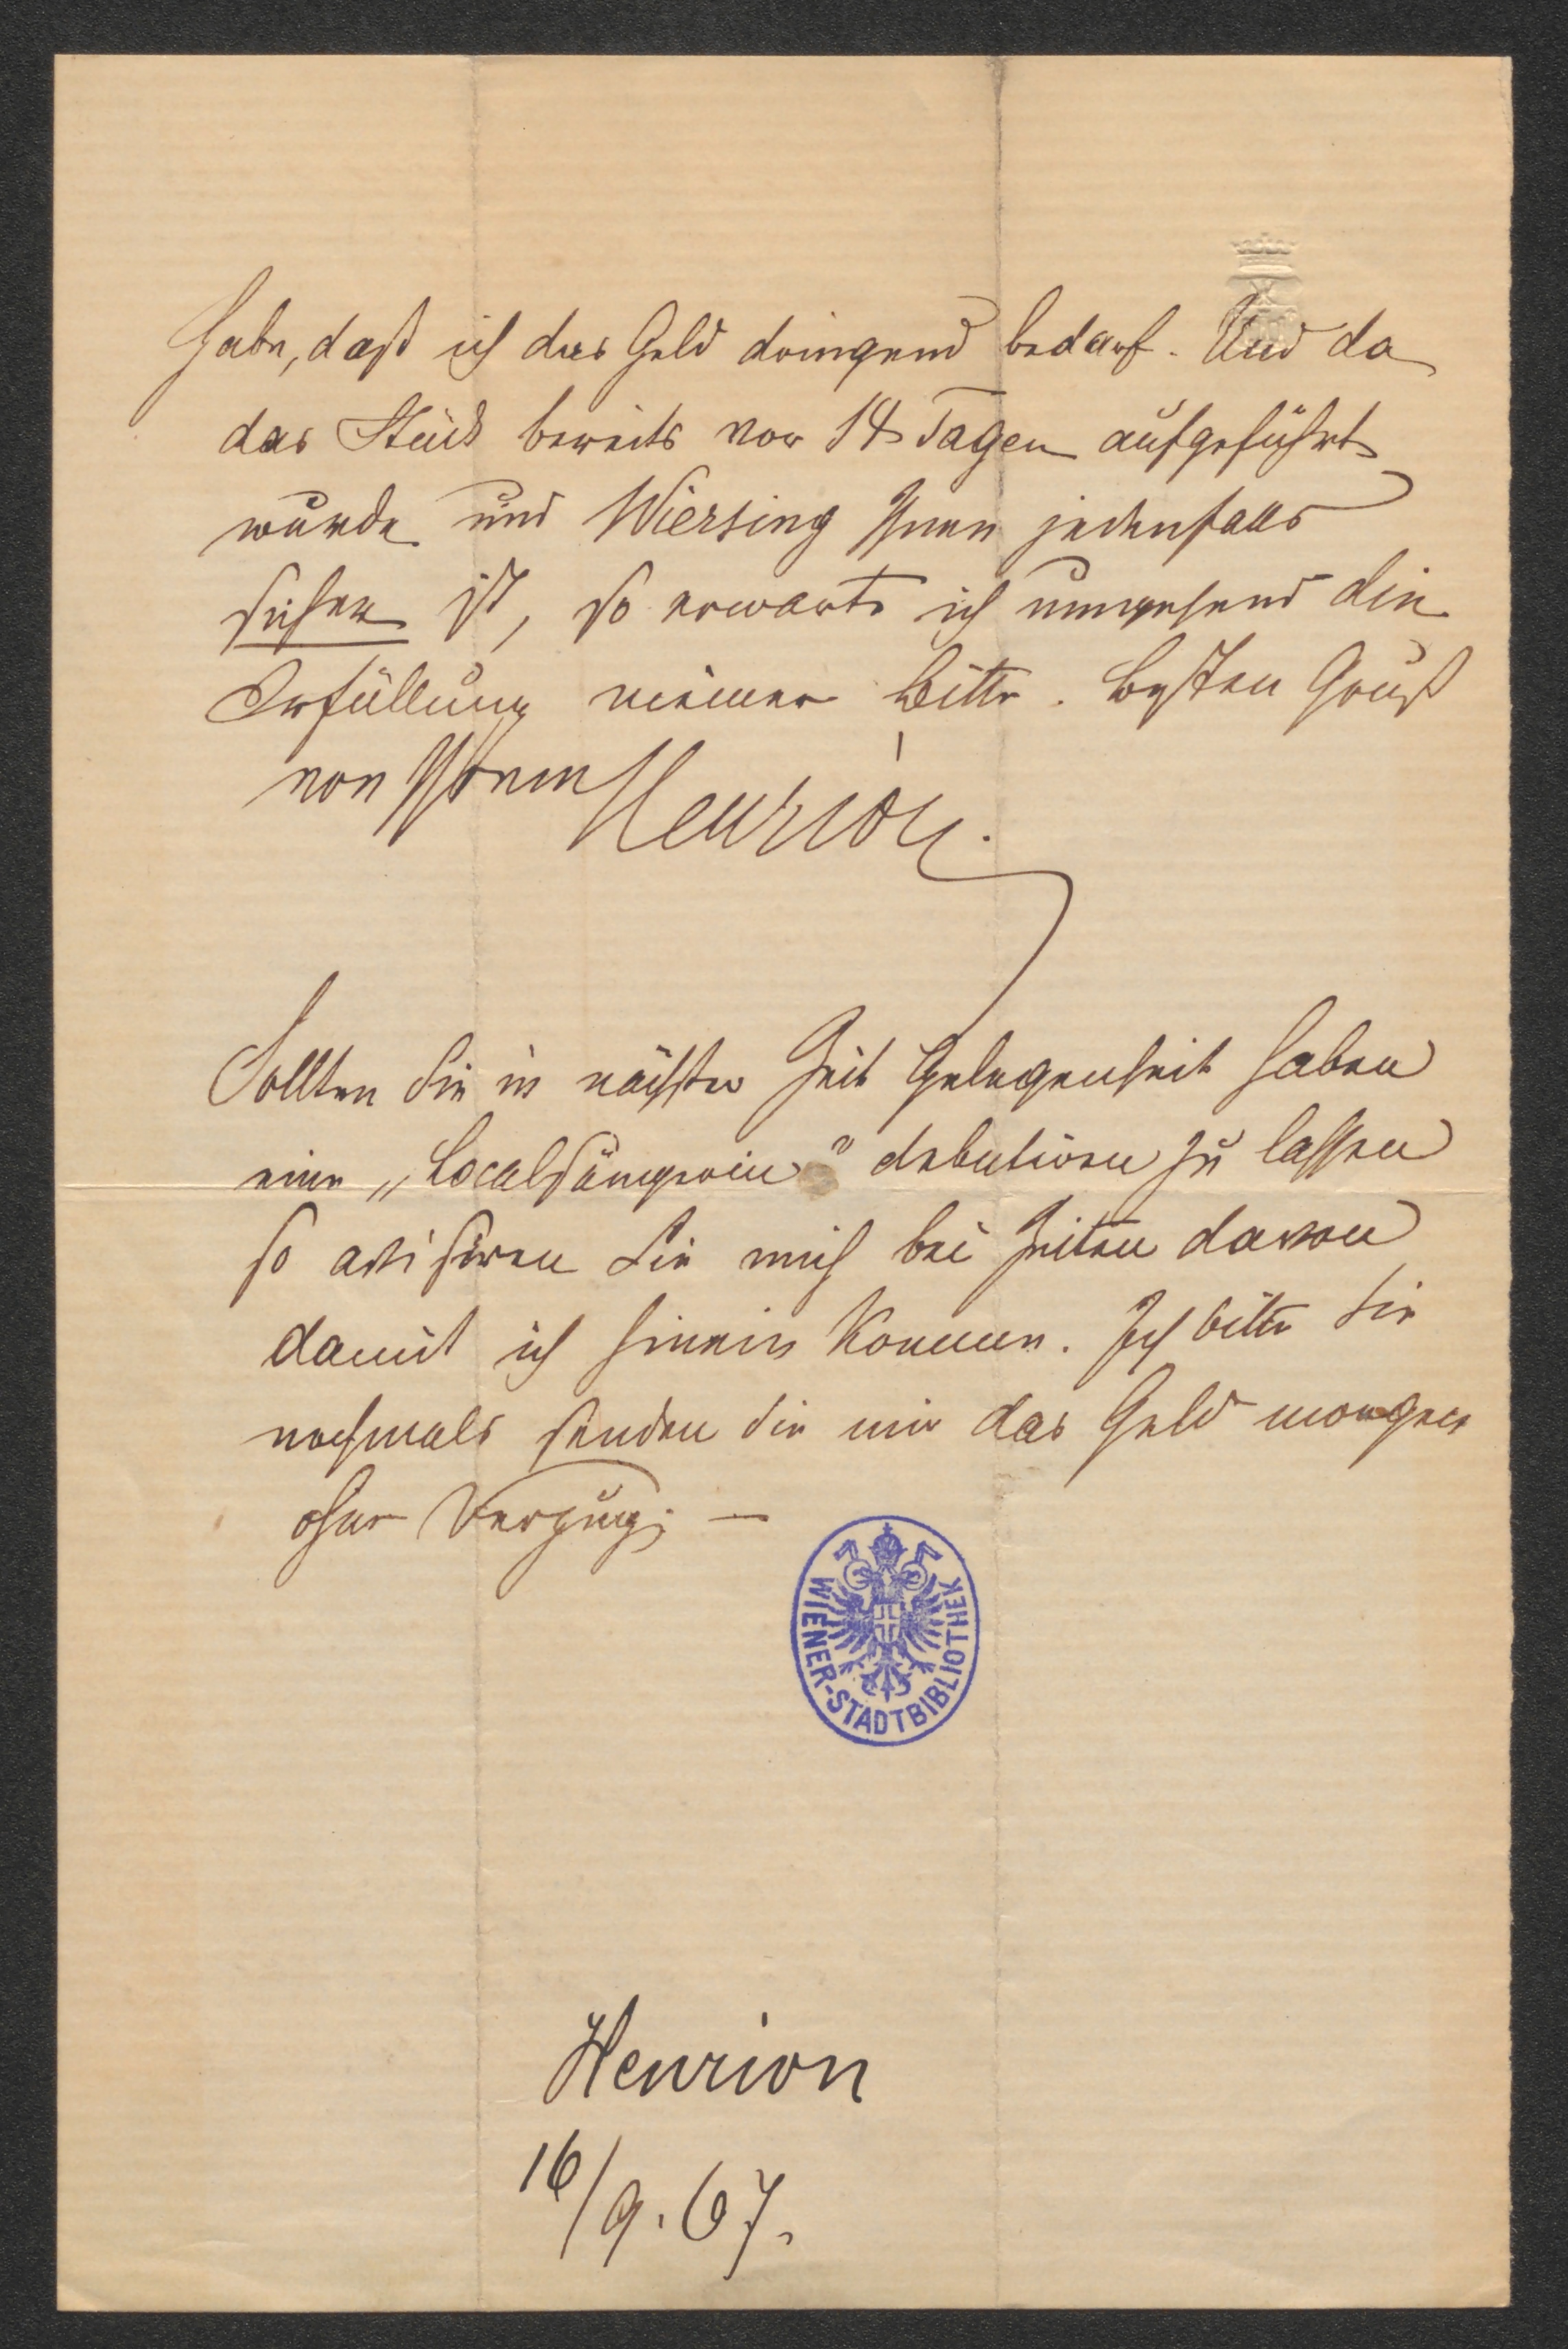 habe, daß ich das Geld dringend bedarf. Und da
das Stück bereits vor 14 Tagen aufgeführt
wurde und Wiersing Ihnen jedenfalls
sicher ist, so erwarte ich umgehend die
Erfüllung meiner Bitte. Besten Gruß
von Ihrem Henrion.
Sollten Sie in nächster Zeit Gelegenheit haben
eine „Localsängerin" debutiren zu lassen
so avisiren Sie mich bei Zeiten davon
damit ich hinein komme. Ich bitte Sie
nochmals senden Sie mir das Geld morgen
ohne Verzug; —
WIENER-STADTBIBLIOTHEK
Henrion
16/9.67.